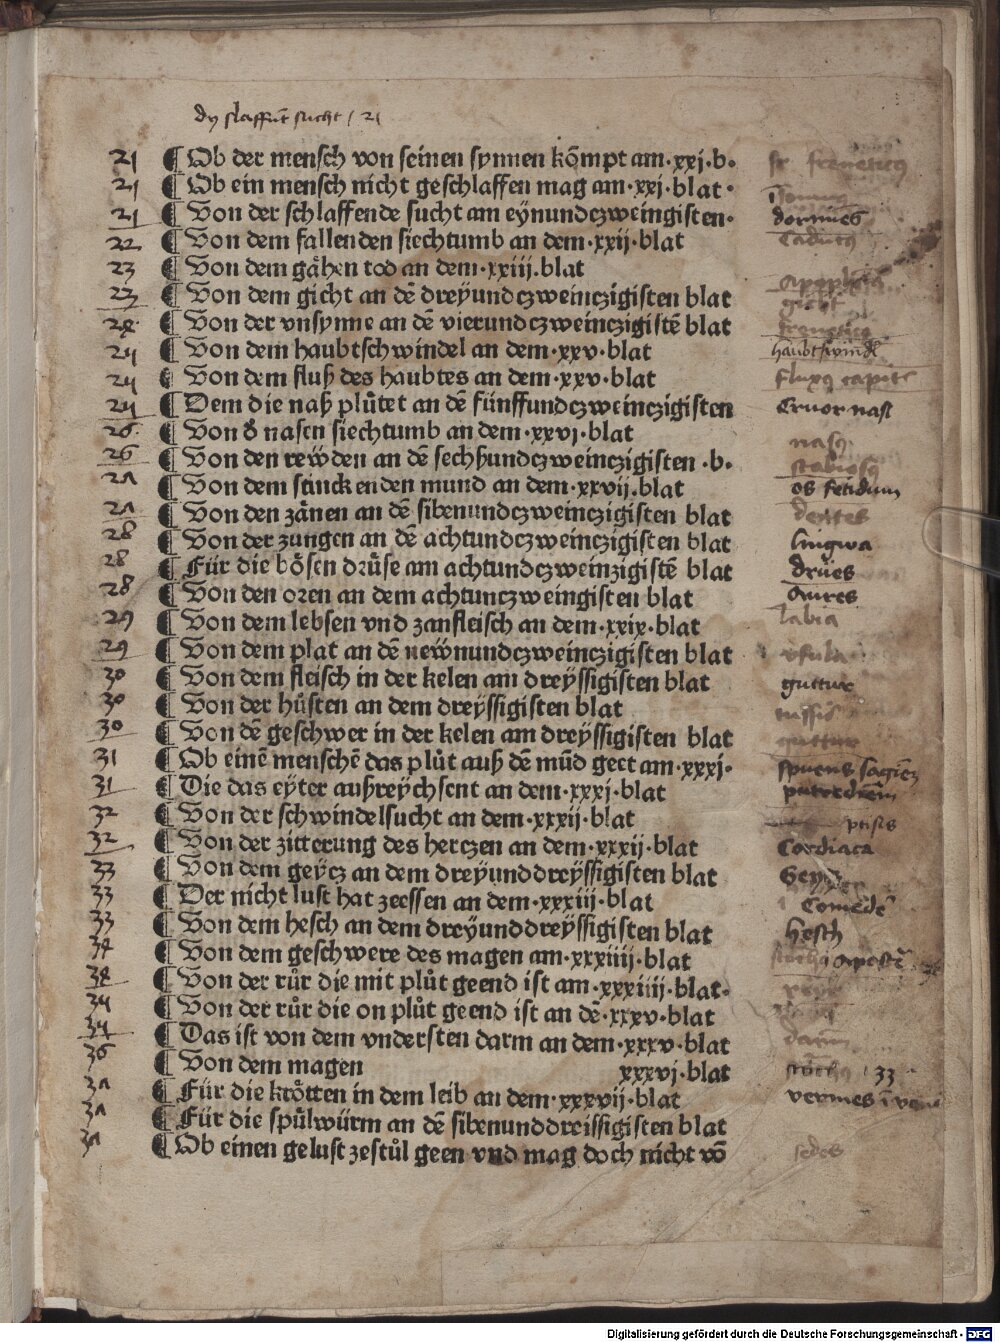 dy slaffent sucht / 21
21 Ob der mensch von seinen synnen kōmpt am·xxj·b· freneticus
21 Ob ein mensch nicht geschlaffen mag am·xxj·blat·
21 Von der schlaffende sucht am eÿnundczweingisten· dormies
22 Von dem fallenden siechtumb an dem·xxij·blat caducus
23 Von dem gåhen tod an dem·xxiij·blat
23 Von dem gicht an dē dreÿundczweinczigisten blat gicht
24 Von der vnsynne an dē vierundczweinczigistē blat frenetica
25 Von dem haubtschwindel an dem·xxv·blat haubtswindl
25 Von dem fluß des haubtes an dem·xxv·blat fluxus capitis
25 Dem die naß plůtet an dē fünffundczweinczigisten Cruor nasi
26 Von d̄ nasen siechtumb an dem·xxvj·blat nasus
26 Von den rewden an dē sechßundczweinczigisten ·b· scabiosus
27 Von dem stinckenden mund an dem·xxvij·blat os fetidum
27 Von den zånen an dē sibenundczweinczigisten blat dentes
28 Von der zungen an dē achtundczweinczigisten blat lingwa
28 Für die bősen drůse am achtundczweinzigistē blat drües
28 Von den oren an dem achtunczweingisten blat Aures
29 Von dem lebsen vnd zanfleisch an dem·xxix·blat labia
29 Von dem plat an dē newnundczweinczigisten blat vfula
30 Von dem fleisch in der kelen am dreÿssigisten blat guttur
30 Von der hůsten an dem dreÿssigisten blat tussis
30 Von dē geschwer in der kelen am dreÿssigisten blat guttur
31 Ob einē menschē das plůt auß dē mūd geet am·xxxj·
31 Die das eÿter außreÿchsent an dem·xxxj·blat
32 Von der schwindelsucht an dem·xxxij·blat ptisis
32 Von der zitterung des herczen an dem·xxxij·blat Cordiaca
33 Von dem geÿcz an dem dreÿunddreÿssigisten blat
33 Der nicht lust hat zeessen an dem·xxxiij·blat
33 Von dem hesch an dem dreÿunddreÿssigisten blat hesch
34 Von dem geschwere des magen am·xxxiiij·blat
34 Von der růr die mit plůt geend ist am·xxxiiij·blat·
35 Von der růr die on plůt geend ist an dē·xxxv·blat
35 Das ist von dem vndersten darm an dem·xxxv·blat
36 Von dem magen xxxvj·blat 33
37 Für die krőtten in dem leib an dem·xxxvij·blat vermes
37 Für die spůlwürm an dē sibenunddreissigisten blat
37 Ob einen gelust zestůl geen vnd mag doch nicht vō sedes
Digitalisierung gefördert durch die Deutsche Forschungsgemeinschaft - DFG